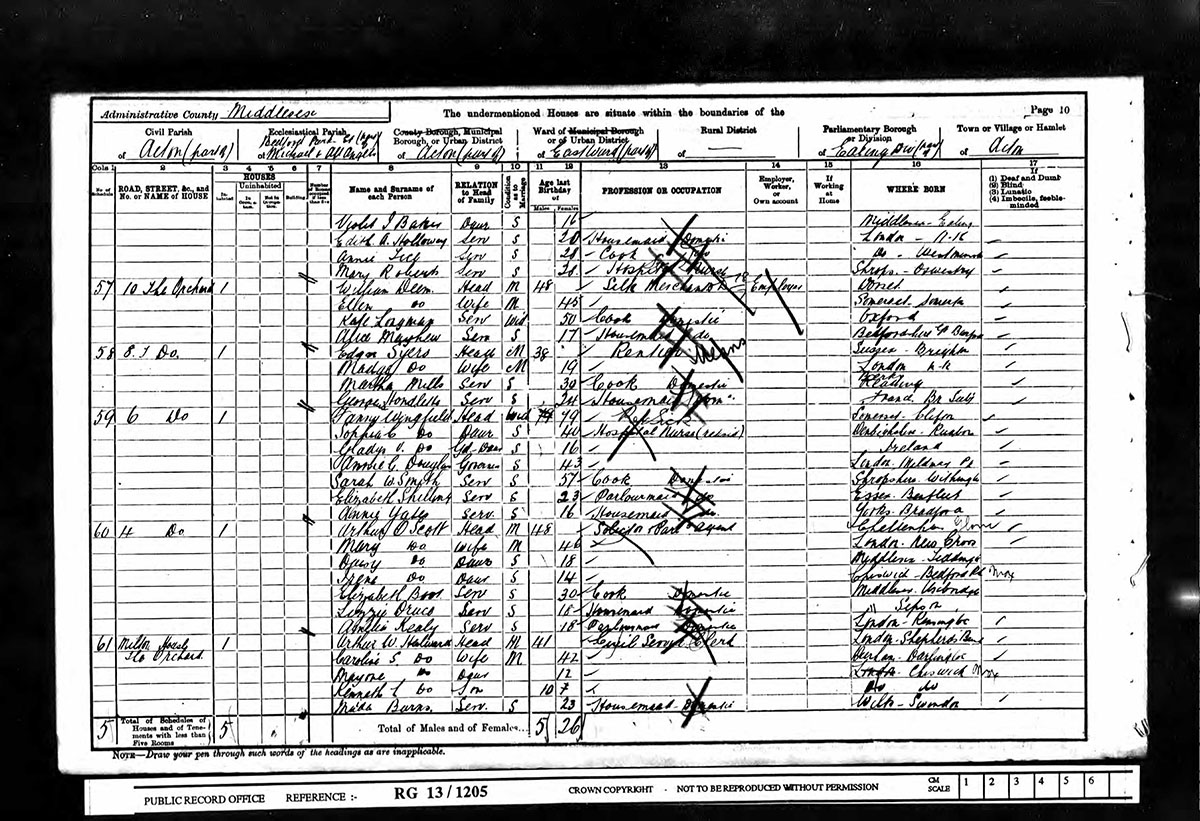 Administrative County Middlesex The undermentioned Houses are situate within the boundaries of the Page 10
Civil Parish of Acton (part of) Ecclesiastical Parish of Bedford Park St (part) Michael & All Angels County Borough, Municipal Borough, or Urban District of Acton (part of) Ward of Municipal Borough or of Urban District of East Ward (part of) Rural District of — Parliamentary Borough or Division of Ealing Div (part of) Town or Village or Hamlet of Acton
Cols 1 2 3 4 5 6 7 8 9 10 11 12 13 14 15 16 17
No. of Schedule ROAD, STREET, &c., and No. or NAME of HOUSE HOUSES Inhabited Uninhabited In Occupation Not in Occupation Building Name and Surname of each Person RELATION to Head of Family Condition as to Marriage Age last Birthday of Males Females PROFESSION OR OCCUPATION Employer, Worker, or Own account If Working at Home WHERE BORN If (1) Deaf and Dumb (2) Blind (3) Lunatic (4) Imbecile, feeble-minded
Violet I Baker Daur S 16 Middlesex - Ealing
Edith A. Holloway Serv S 20 Housemaid Domestic London - N.K
Annie Serv S 28 Cook Do
Mary Roberts Serv S 28 Hospital Nurse Shrops - Oswestry
57 10 The Orchard 1 William Head M 48 Silk Merchant Employer Dorset
Ellen Do Wife M 45 Somerset
Kate Longman Serv Wid 50 Cook Domestic Oxford
Alice Mayhew Serv S 17 Housemaid do Bedfordshire
58 8 Do. 1 Edgar Syers Head M 38 Means Sussex - Brighton
Madge Do Wife M 19 London N.K
Martha Mills Serv S 30 Cook Domestic Berks Reading
Serv S 24 Housemaid Dom France Br Subj
59 6 Do 1 Fanny Head Wid 79 Somerset - Clifton
Sophia C Do Daur S 40 Hospital Nurse (retired) Denbighshire - Ruabon
Gladys V. Do Gd-Daur S 16 Ireland
Annie C. Douglas Governess S 43 London - Mildmay Pk
Sarah W. Smyth Serv S 57 Cook Domestic Shropshire
Elizabeth Serv S 23 Parlourmaid do Essex
Annie Yates Serv S 16 Housemaid do Yorks - Bradford
60 4 Do 1 Arthur O Scott Head M 48 Solicitor Parl Agent Cheltenham
Mary Do Wife M 46 London - New Cross
Daisy Do Daur S 18 Middlesex - Teddington
Irene Do Daur S 14 Chiswick - Bedford Pk
Elizabeth Serv S 30 Cook Domestic Middlesex - Uxbridge
Lizzie Druce Serv S 18 Housemaid Domestic
Amelia Kealy Serv S 18 Parlourmaid Domestic London - Kensington
61 Milton House The Orchard 1 Arthur W. Head M 41 Civil Service Clerk London - Shepherds Bush
Caroline S. Do Wife M 42 Durham - Darlington
Do Daur 12 London Chiswick
Kenneth Do Son 10 Do do
Burns Serv S 23 Housemaid Domestic Wilts - Swindon
5 Total of Schedules of Houses and of Tenements with less than Five Rooms 5 Total of Males and of Females... 5 26
NOTE—Draw your pen through such words of the headings as are inapplicable.
PUBLIC RECORD OFFICE REFERENCE :- RG 13/1205 CROWN COPYRIGHT - NOT TO BE REPRODUCED WITHOUT PERMISSION CM SCALE 1 2 3 4 5 6